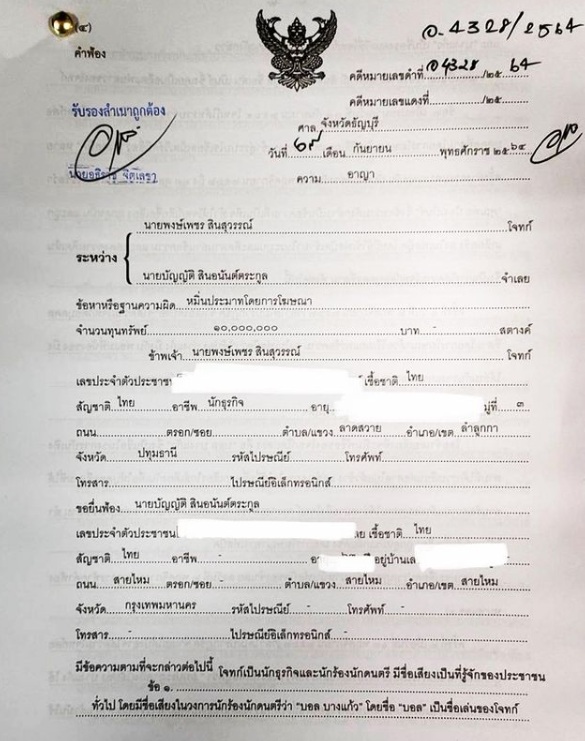 (๔)
อ. 4328/2564
คำฟ้อง
คดีหมายเลขดำที่ อ4328 /๒๕ 64
คดีหมายเลขแดงที่ /๒๕
รับรองสำเนาถูกต้อง
ศาล จังหวัดธัญบุรี
วันที่ เดือน กันยายน พุทธศักราช ๒๕๖๔
ความ อาญา
นายพงษ์เพชร สินสุวรรณ์ โจทก์
ระหว่าง
นายบัญญัติ สินอนันต์ตระกูล จำเลย
ข้อหาหรือฐานความผิด หมิ่นประมาทโดยการโฆษณา
จำนวนทุนทรัพย์ ๑๐,๐๐๐,๐๐๐ บาท - สตางค์
ข้าพเจ้า นายพงษ์เพชร สินสุวรรณ์ โจทก์
เลขประจำตัวประชาชน เชื้อชาติ ไทย
สัญชาติ ไทย อาชีพ นักธุรกิจ อายุ หมู่ที่ ๓
ถนน ตรอก/ซอย ตำบล/แขวง ลาดสวาย อำเภอ/เขต ลำลูกกา
จังหวัด ปทุมธานี รหัสไปรษณีย์ โทรศัพท์
โทรสาร ไปรษณีย์อิเล็กทรอนิกส์
ขอยื่นฟ้อง นายบัญญัติ สินอนันต์ตระกูล
เลขประจำตัวประชาชน เชื้อชาติ ไทย
สัญชาติ ไทย อาชีพ - อยู่บ้านเล
ถนน สายไหม ตรอก/ซอย - ตำบล/แขวง สายไหม อำเภอ/เขต สายไหม
จังหวัด กรุงเทพมหานคร รหัสไปรษณีย์ - โทรศัพท์ -
โทรสาร - ไปรษณีย์อิเล็กทรอนิกส์ -
มีข้อความตามที่จะกล่าวต่อไปนี้ โจทก์เป็นนักธุรกิจและนักร้องนักดนตรี มีชื่อเสียงเป็นที่รู้จักของประชาชน
ข้อ ๑.
ทั่วไป โดยมีชื่อเสียงในวงการนักร้องนักดนตรีว่า "บอล บางแก้ว" โดยชื่อ "บอล" เป็นชื่อเล่นของโจทก์